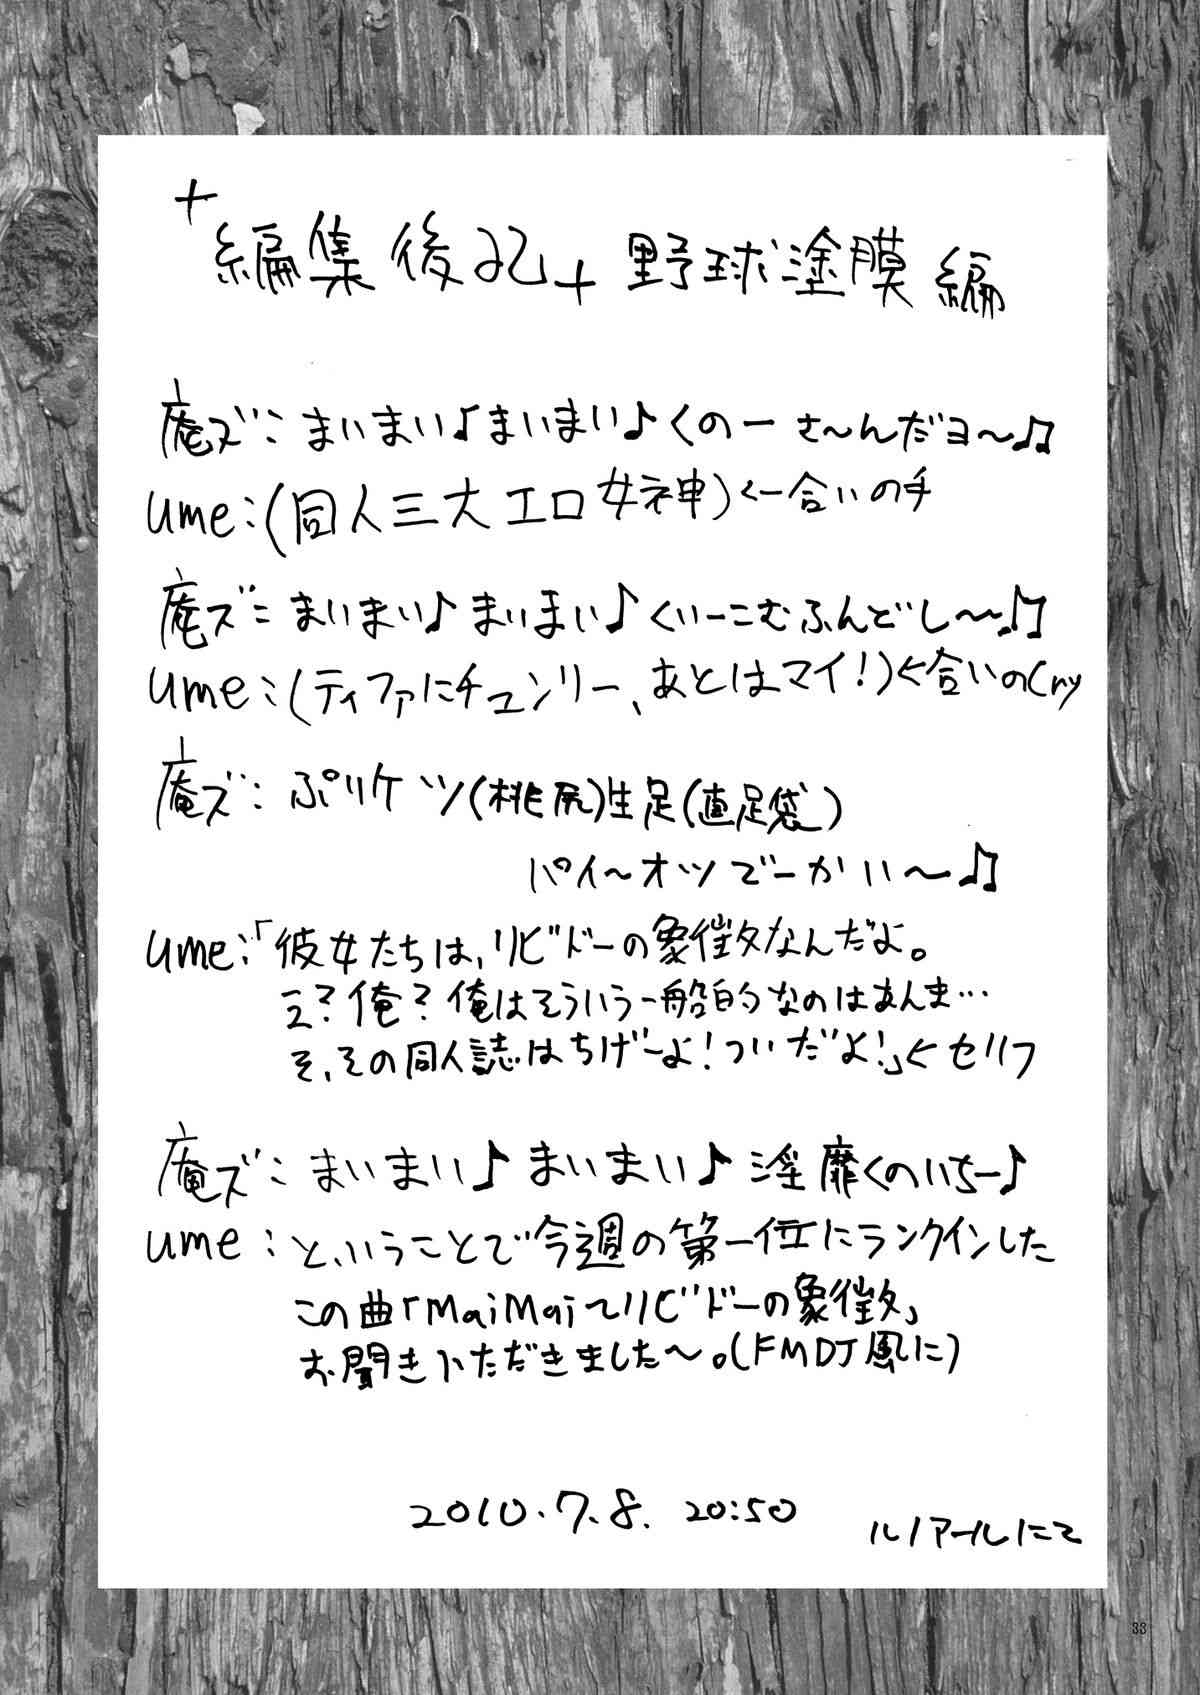 +編集後記+ 野球塗膜 編
庵ズ:まいまい♪まいまい♪くのーさ〜んだヨ〜♫
ume:(同人三大エロ女神)←合いの手
庵ズ:まいまい♪まいまい♪くいーこむふんどし〜♫
ume:(ティファにチュンリー、あとはマイ!)←合いの(ry
庵ズ:ぷりケツ(桃尻)生足(直足袋)
パイ〜オツでーかい〜♫
ume:「彼女たちは、リビドーの象徴なんだよ。
え?俺?俺はそういう一般的なのはあんま…
そ、その同人誌はちげーよ!ついだよ!」←セリフ
庵ズ:まいまい♪まいまい♪淫靡くのいちー♪
ume:と、いうことで今週の第一位にランクインした
この曲「MaiMai〜リビドーの象徴」
お聞きいただきました〜。(FMDJ風に)
2010.7.8. 20:50
ルノアールにて
33